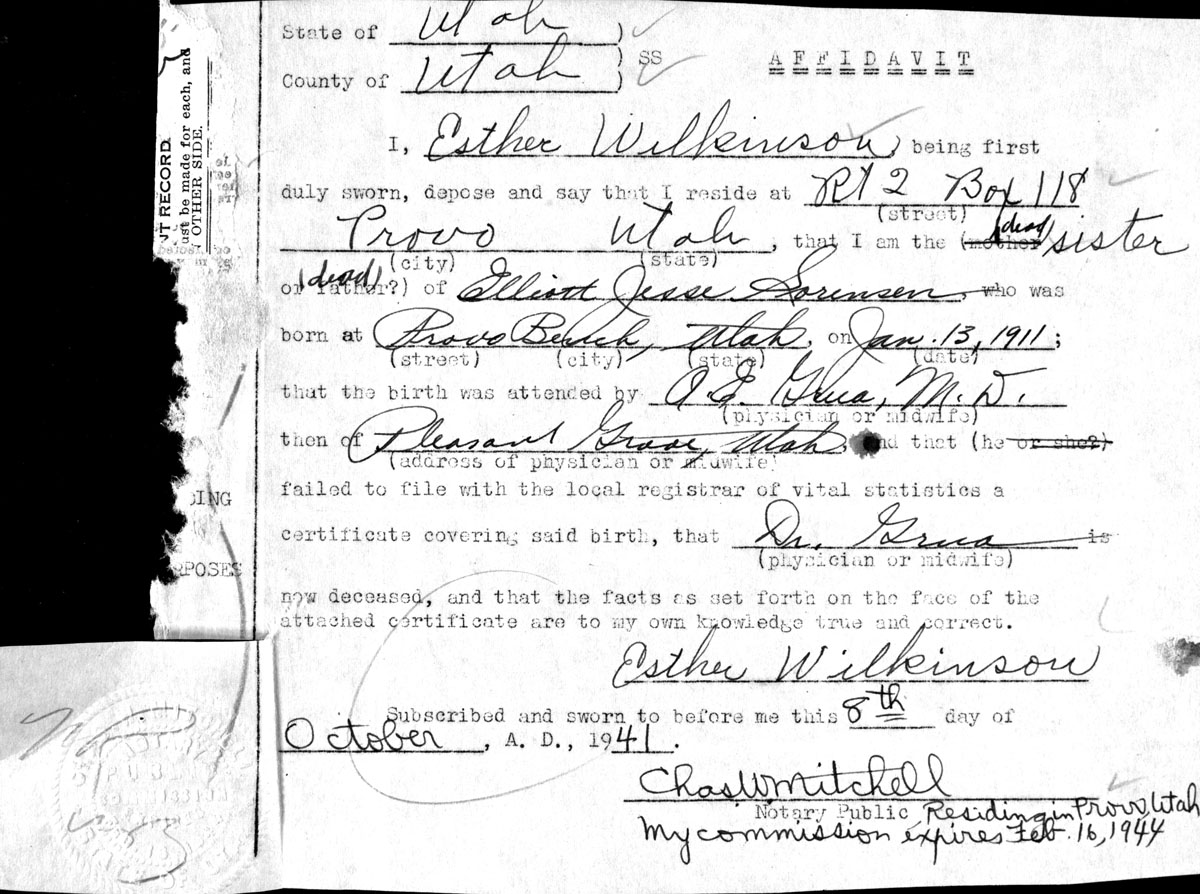 State of Utah )
) SS
County of Utah )
AFFIDAVIT
I, Esther Wilkinson, being first
duly sworn, depose and say that I reside at Rt 2 Box 118
(street)
Provo Utah, that I am the (mother (dead) sister
(city) (state)
(dead)
or father?) of Elliott Jesse Sorensen, who was
born at Provo Bench, Utah, on Jan. 13, 1911;
(street) (city) (state) (date)
that the birth was attended by A.E. Grua, M.D.
(physician or midwife)
then of Pleasant Grove, Utah, and that (he or she?)
(address of physician or midwife)
failed to file with the local registrar of vital statistics a
certificate covering said birth, that Dr. Grua is
(physician or midwife)
now deceased, and that the facts as set forth on the face of the
attached certificate are to my own knowledge true and correct.
Esther Wilkinson
Subscribed and sworn to before me this 8th day of
October, A. D., 1941.
Chas W Mitchell
Notary Public Residing in Provo, Utah
My commission expires Feb. 16, 1944
NT RECORD.
ust be made for each, and
OTHER SIDE.
ING
RPOSES
PUBLIC
COMMISSION